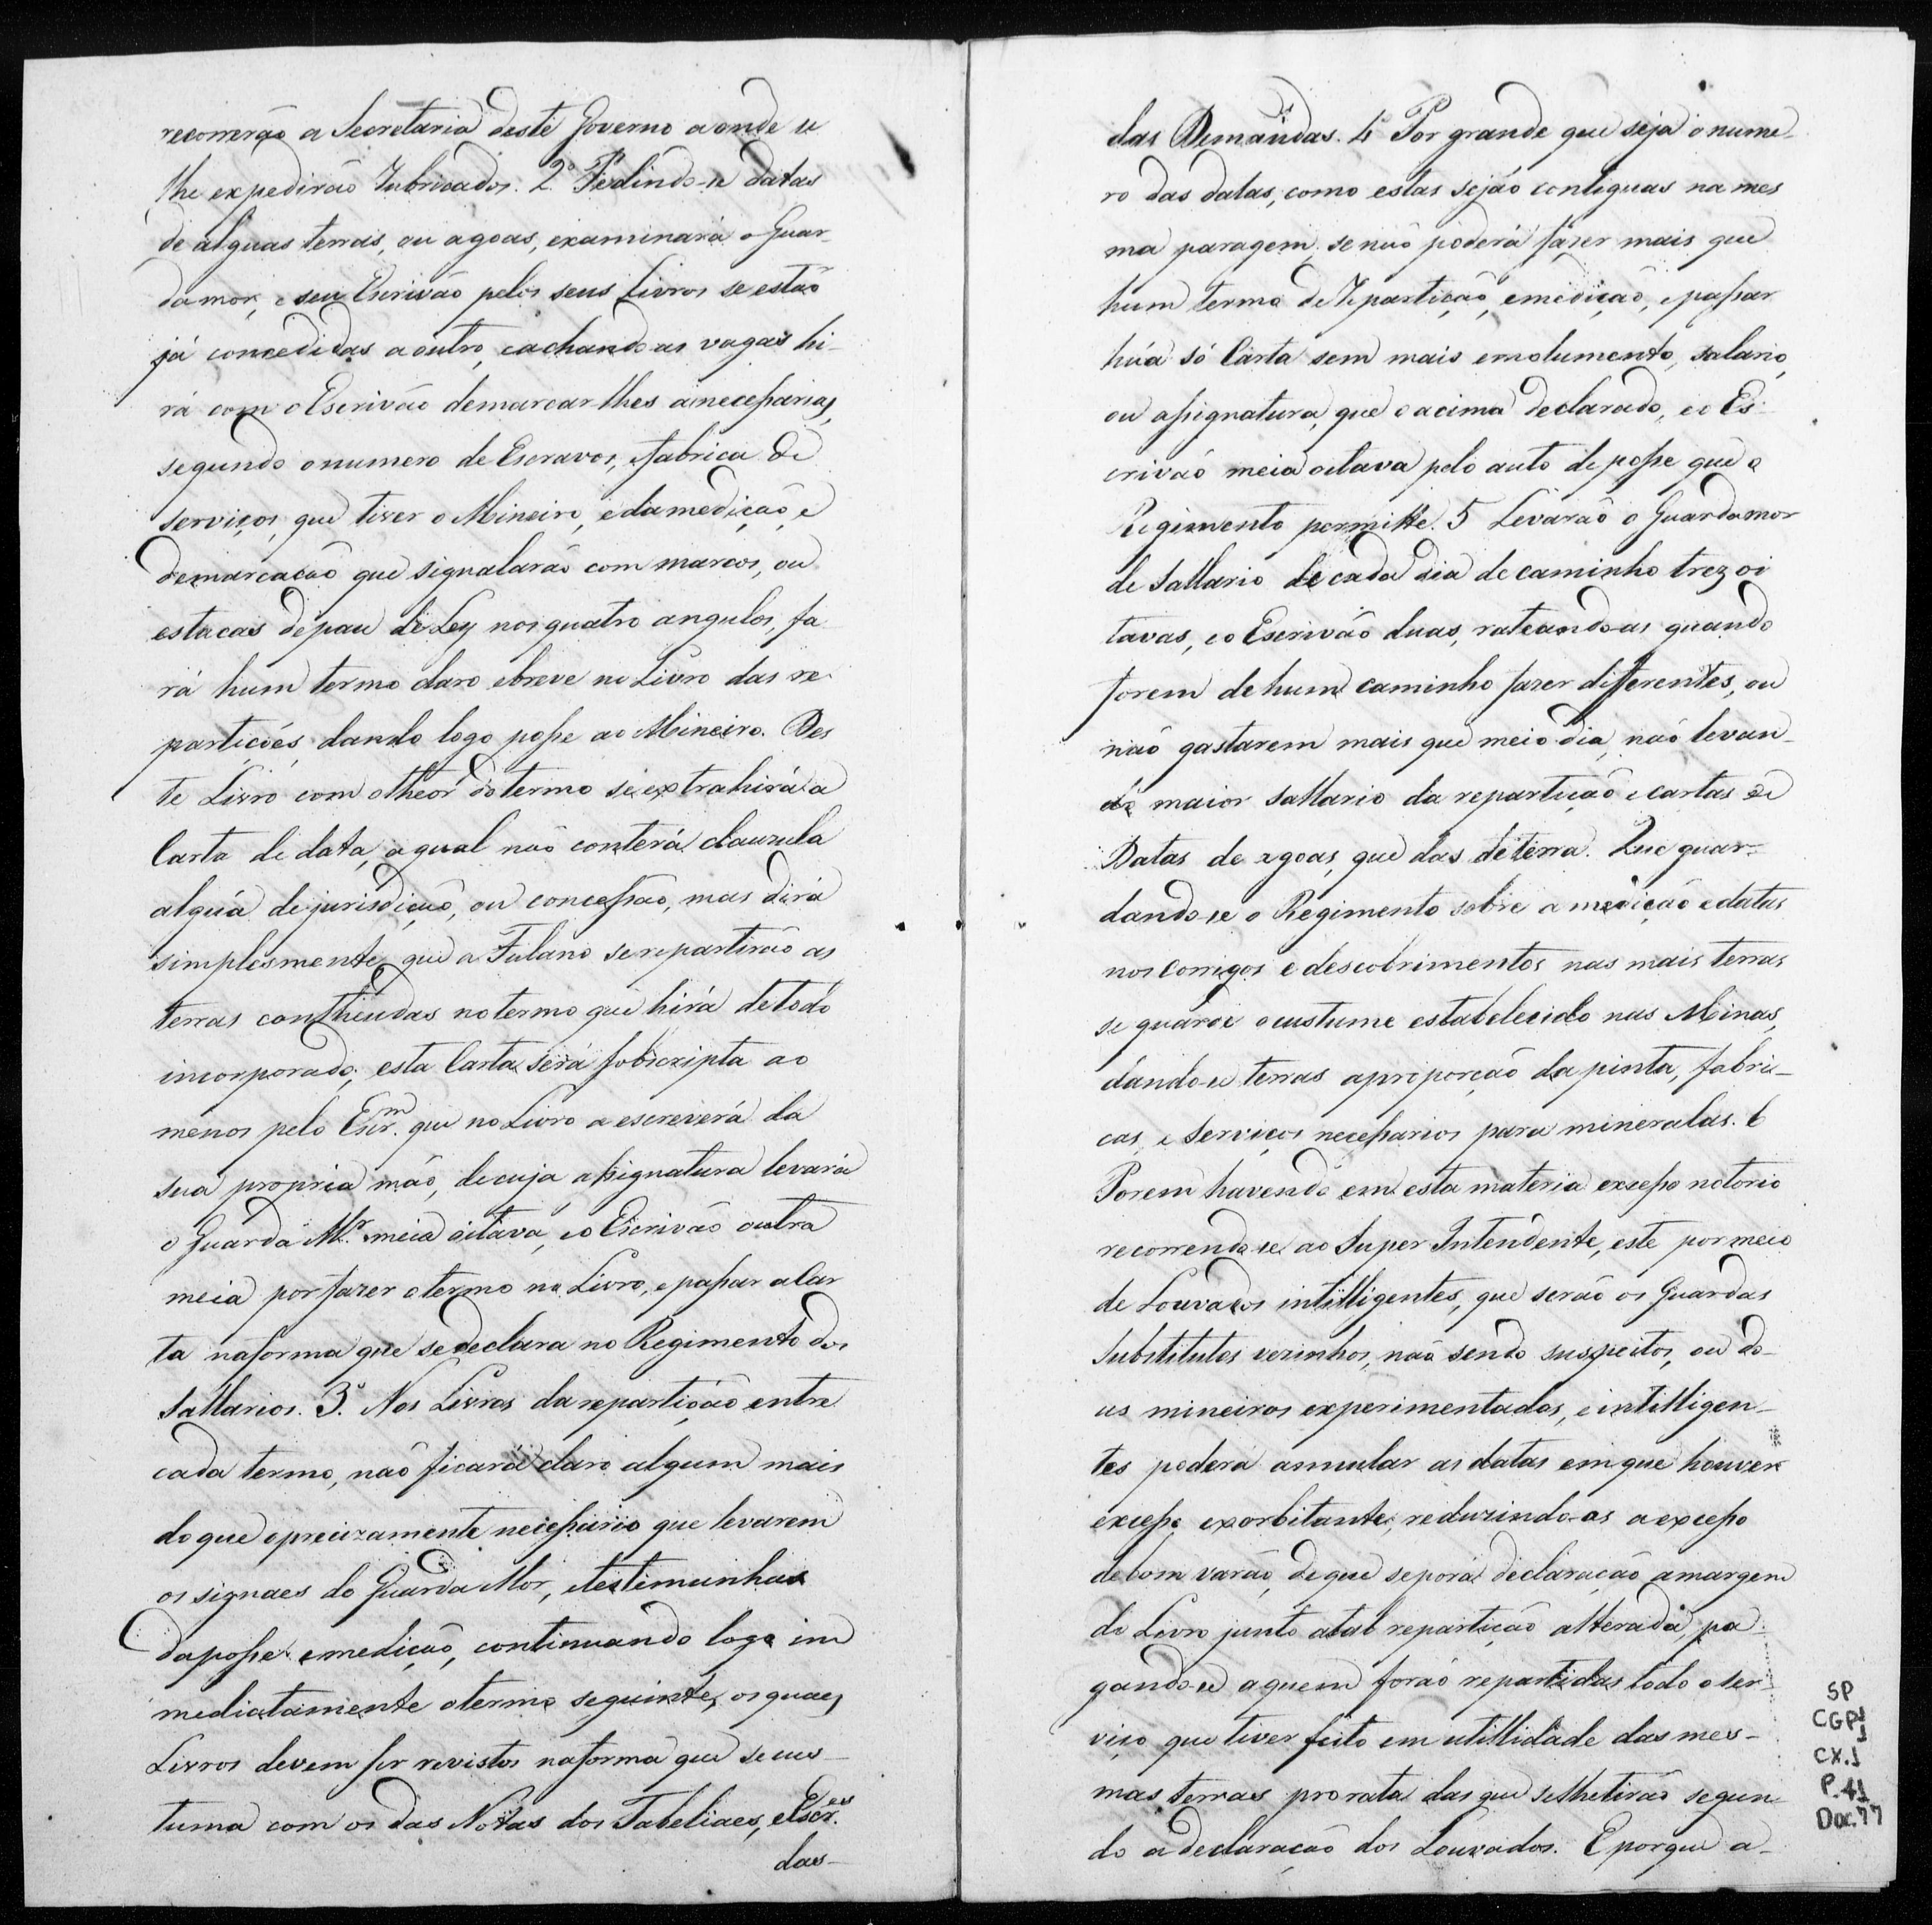 recorrerão a Secretaria deste Governo aonde se
lhe expedirão Rubricados. 2.º Pedindo-se datas
de alguas terras, ou agoas, examinará o Guar-
damor, e seu Escrivão pelos seus Livros se estão
já concedidas a outro, e achando as vagas hi-
rá com o Escrivão demarcarlhes as necessarias,
segundo o numero de Escravos, e fabrica de
serviços, que tiver o Mineiro, e da medição, e
demarcação que signalarão com marcos, ou
estacas de pau de Ley nos quatro angulos, fa
rá hum termo claro e breve no Livro das re-
partições, dando logo posse ao Mineiro. Des
te Livro com o theor do termo se extrahirá a
Carta de data, a qual não conterá clauzula
alguá de jurisdição, ou concessão, mas dirá
simplesmente, que a Fulano se repartirão as
terras contheudas no termo que hirá de todo
incorporado; esta Carta será sobscripta ao
menos pelo Escr.m que no Livro a escreverá da
sua propria mão, de cuja assignatura levará
o Guarda M.r meia oitava, e o Escrivão outra
meia por fazer o termo no Livro, e passar a Car
ta na forma que se declara no Regimento dos
Sallarios. 3.º Nos Livros da repartição entre
cada termo, não ficará claro algum mais
do que o precizamente necessario que levarem
os signaes do Guarda Mor, e testemunhas
da posse e medição, continuando logo im
mediatamente o termo seguinte, os quaes
Livros devem ser revistos na forma que se cus-
tuma com os das Notas dos Tabeliaes, e Escr.es
das-
das Demandas. 4º Por grande que seja o nume-
ro das datas, como estas sejão contiguas na mes
ma paragem, se não poderá fazer mais que
hum termo de Repartição, e medição, e passar
húa só Carta sem mais emolumento, salario,
ou assignatura, que o acima declarado, e o Es-
crivão meia oitava pelo auto de posse que o
Regimento permitte. 5 Levarão o Guardamor
de Sallario de cada dia de caminho trez oi
tavas, e o Escrivão duas, rateando-as quando
forem de hum caminho fazer differentes, ou
não gastarem mais que meio dia, não levan-
do maior sallario da repartição e cartas de
Datas de agoas, que das de terra. Que guar-
dando-se o Regimento sobre a medição e datas
nos Corrigos e descobrimentos nas mais terras
se guarde o custume estabelecido nas Minas,
dando-se terras a proporção da pinta, fabri-
cas, e serviços necessarios para mineralas. 6
Porem havendo em esta materia excesso notorio
recorrendo-se ao Super Intendente, este por meio
de Louvados intilligentes, que serão os Guardas
Substitutos vezinhos, não sendo suspeitos, ou do-
us mineiros experimentados, e intilligen-
tes poderá annular as datas em que houver
excesso exorbitante, reduzindo-as a excesso
de bom varão, de que se porá declaração a margem
do Livro junto a tal repartição alterada, pa-
gando-se a quem forão repartidas todo o ser-
viço que tiver feito em utillidade das mes-
mas terras pro rata das que se lhe tirão segun
do a declaração dos Louvados. E porque a-
SP
CGP1
1
CX.1
P.41
Doc.77